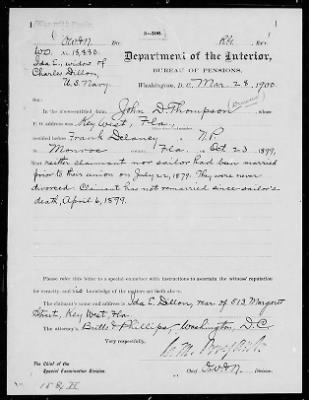 3-508.
O.W.&N. Div.
Ex'r
WO. No. 13,830.
Ida E., widow of
Charles Dillon,
U.S. Navy.
Department of the Interior,
BUREAU OF PENSIONS,
Washington, D. C., Mar. 28, 1900.
In the above-entitled claim, John D. Thompson
whose P. O. address was Key West, Fla.,
testified before Frank Delaney N.P.
Monroe county, Fla. on Oct 23, 1899,
that neither claimant nor sailor had been married
prior to their union on July 22, 1879. They were never
divorced. Claimant has not remarried since sailor's
death, April 6, 1899.
Please refer this letter to a special examiner with instructions to ascertain the witness' reputation
for veracity, and his knowledge of the matters set forth above.
The claimant's name and address is Ida E. Dillon, rear of 513 Margaret
Street, Key West, Fla.
The attorney's Butts & Phillips, Washington, D.C.
Very respectfully,
Chief O.W.&N. Division.
The Chief of the
Special Examination Division.